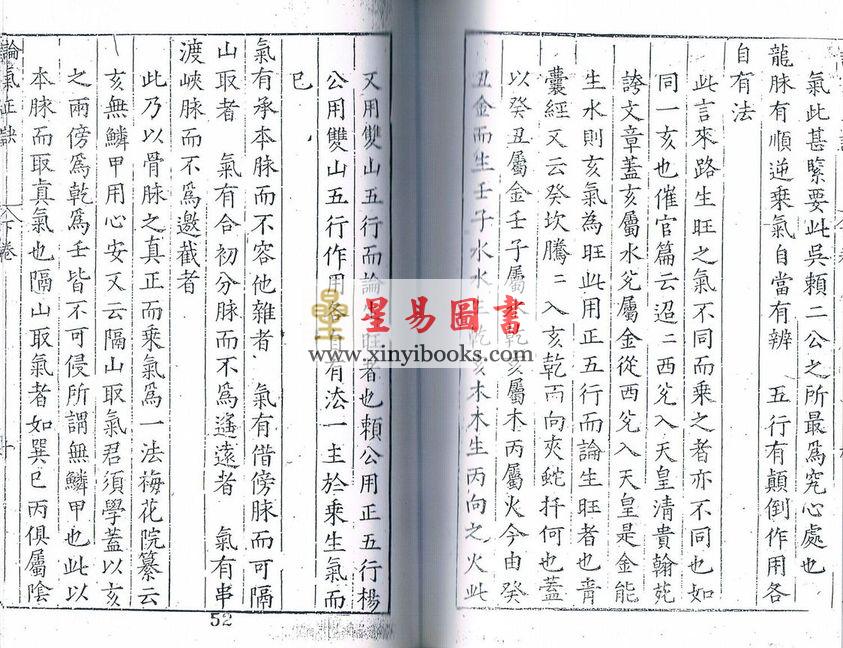 氣此甚緊要此吳賴二公之所最爲究心處也
龍脉有順逆乗氣自當有辨 五行有顛倒作用各
自有法
此言來路生旺之氣不同而乗之者亦不同也如
同一亥也催官篇云迢二西兊入天皇清貴翰苑
誇文章蓋亥屬水兊屬金從西兊入天皇是金能
生水則亥氣為旺此用正五行而論生旺者也青
囊經又云癸坎騰二入亥乾丙向夾蛇扦何也蓋
以癸丑屬金壬子屬水乾亥屬木丙屬火今由癸
丑金而生壬子水水生乾亥木木生丙向之火此
又用雙山五行而論生旺者也賴公用正五行楊
公用雙山五行作用各自有法一主於乘生氣而
已
氣有承本脉而不容他雜者 氣有借傍脉而可隔
山取者 氣有合初分脉而不爲遙遠者 氣有串
渡峽脉而不爲邀截者
此乃以骨脉之真正而乘氣爲一法梅花院纂云
亥無鱗甲用心安又云隔山取氣君須學蓋以亥
之兩傍爲乾爲壬皆不可侵所謂無鱗甲也此以
本脉而取真氣也隔山取氣者如巽巳丙俱屬陰
論氣正訣 下卷
52
星易圖書
www.xinyibooks.com